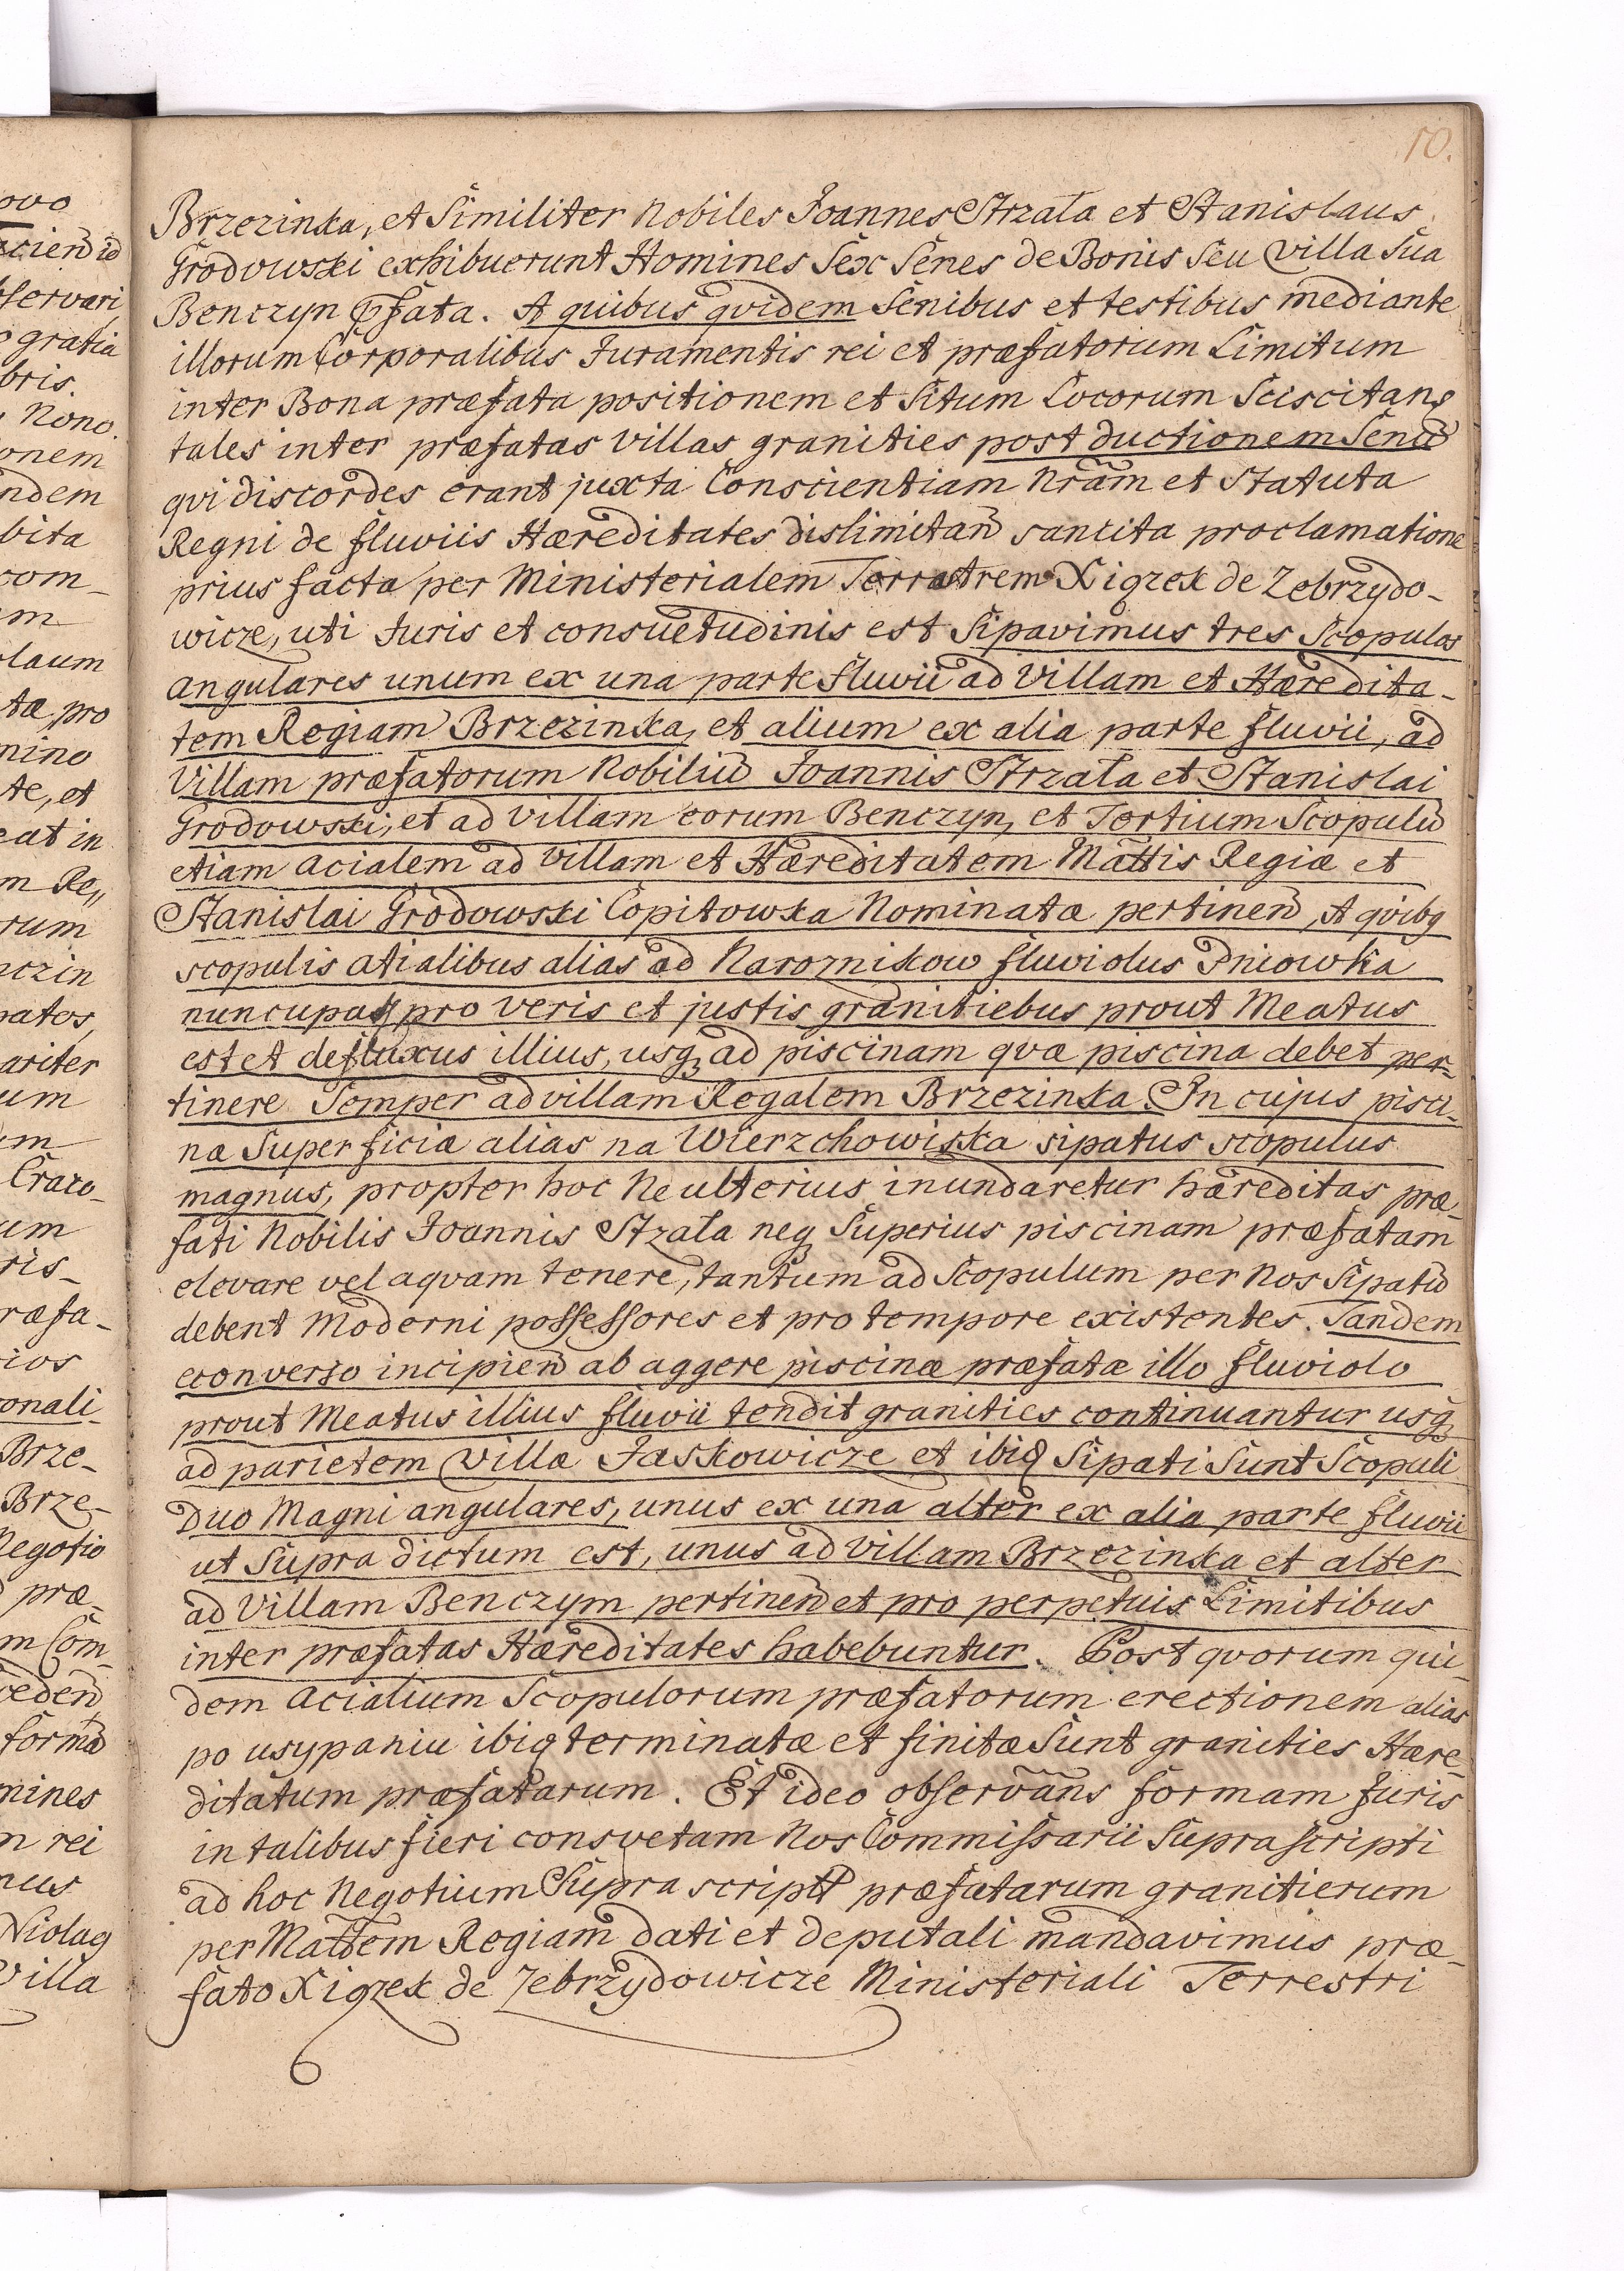 10.
Brzezinka, et Similiter Nobiles Joannes Strzała et Stanislaus
Grodowski exhibuerunt Homines Sex Senes de Bonis Seu Villa Sua
Benczyn pfata. A quibus qvidem Senibus et testibus mediante
illorum Corporalibus Juramentis rei et præfatorum Limitum
inter Bona præfata positionem et Situm Locorum Sciscitan
tales inter præfatas Villas granities post ductionem Senū
qvi discordes erant juxta Conscientiam Nram et Statuta
Regni de fluviis Hæreditates dislimitan sancita proclamatione
prius facta per Ministerialem Terrestrem Xiązek de Zebrzydo-
wicze, uti Juris et consvetudinis est Sipavimus tres Scopulos
angulares unum ex una parte fluvii ad Villam et Hæredita-
tem Regiam Brzezinka, et alium ex alia parte fluvii, ad
Villam præfatorum Nobiliū Joannis Strzała et Stanislai
Grodowski, et ad Villam eorum Benczyn, et Tertium Scopulū
etiam acialem ad Villam et Hæreditatem Mattis Regiæ et
Stanislai Grodowski Copitowka Nominatæ pertinen, A qvibq
scopulis atialibus alias od Naroznikow fluviolus Pniowka
nuncupatq pro veris et justis granitiebus prout Meatus
est et defluxus illius, usq ad piscinam qvæ piscina debet per-
tinere Semper ad villam Regalem Brzezinka. In cujus pisci-
næ Superficiæ alias na Wierzchowiska sipatus scopulus
magnus, propter hoc Ne ulterius inundaretur hæreditas præ-
fati Nobilis Joannis Strzała neq Superius piscinam præfatam
elevare vel aqvam tenere, tantum ad Scopulum per Nos Sipatū
debent Moderni possessores et pro tempore existentes. Tandem
econverso incipien ab aggere piscinæ præfatæ illo fluviolo
prout Meatus illius fluvii tendit granities continuantur usq
ad parietem Villæ Jaskowicze et ibiq Sipati Sunt Scopuli
Duo Magni angulares, unus ex una alter ex alia parte fluvii
ut Supra dictum est, unus ad Villam Brzezinka et alter
ad Villam Benczym pertinen et pro perpetuis Limitibus
inter præfatas Hæreditates habebuntur. Post qvorum qui-
dem acialium Scopulorum præfatorum erectionem alias
po usypaniu ibiq terminatæ et finitæ Sunt granities Hære-
ditatum præfatarum. Et ideo observans formam Juris
in talibus fieri consvetam Nos Commissarii Suprascripti
ad hoc Negotium Supra script præfatarum granitierum
per Mattem Regiam dati et deputali mandavimus præ-
fato Xiązek de Zebrzydowicze Ministeriali Terrestri